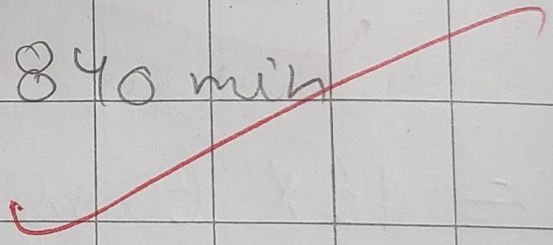 840 min